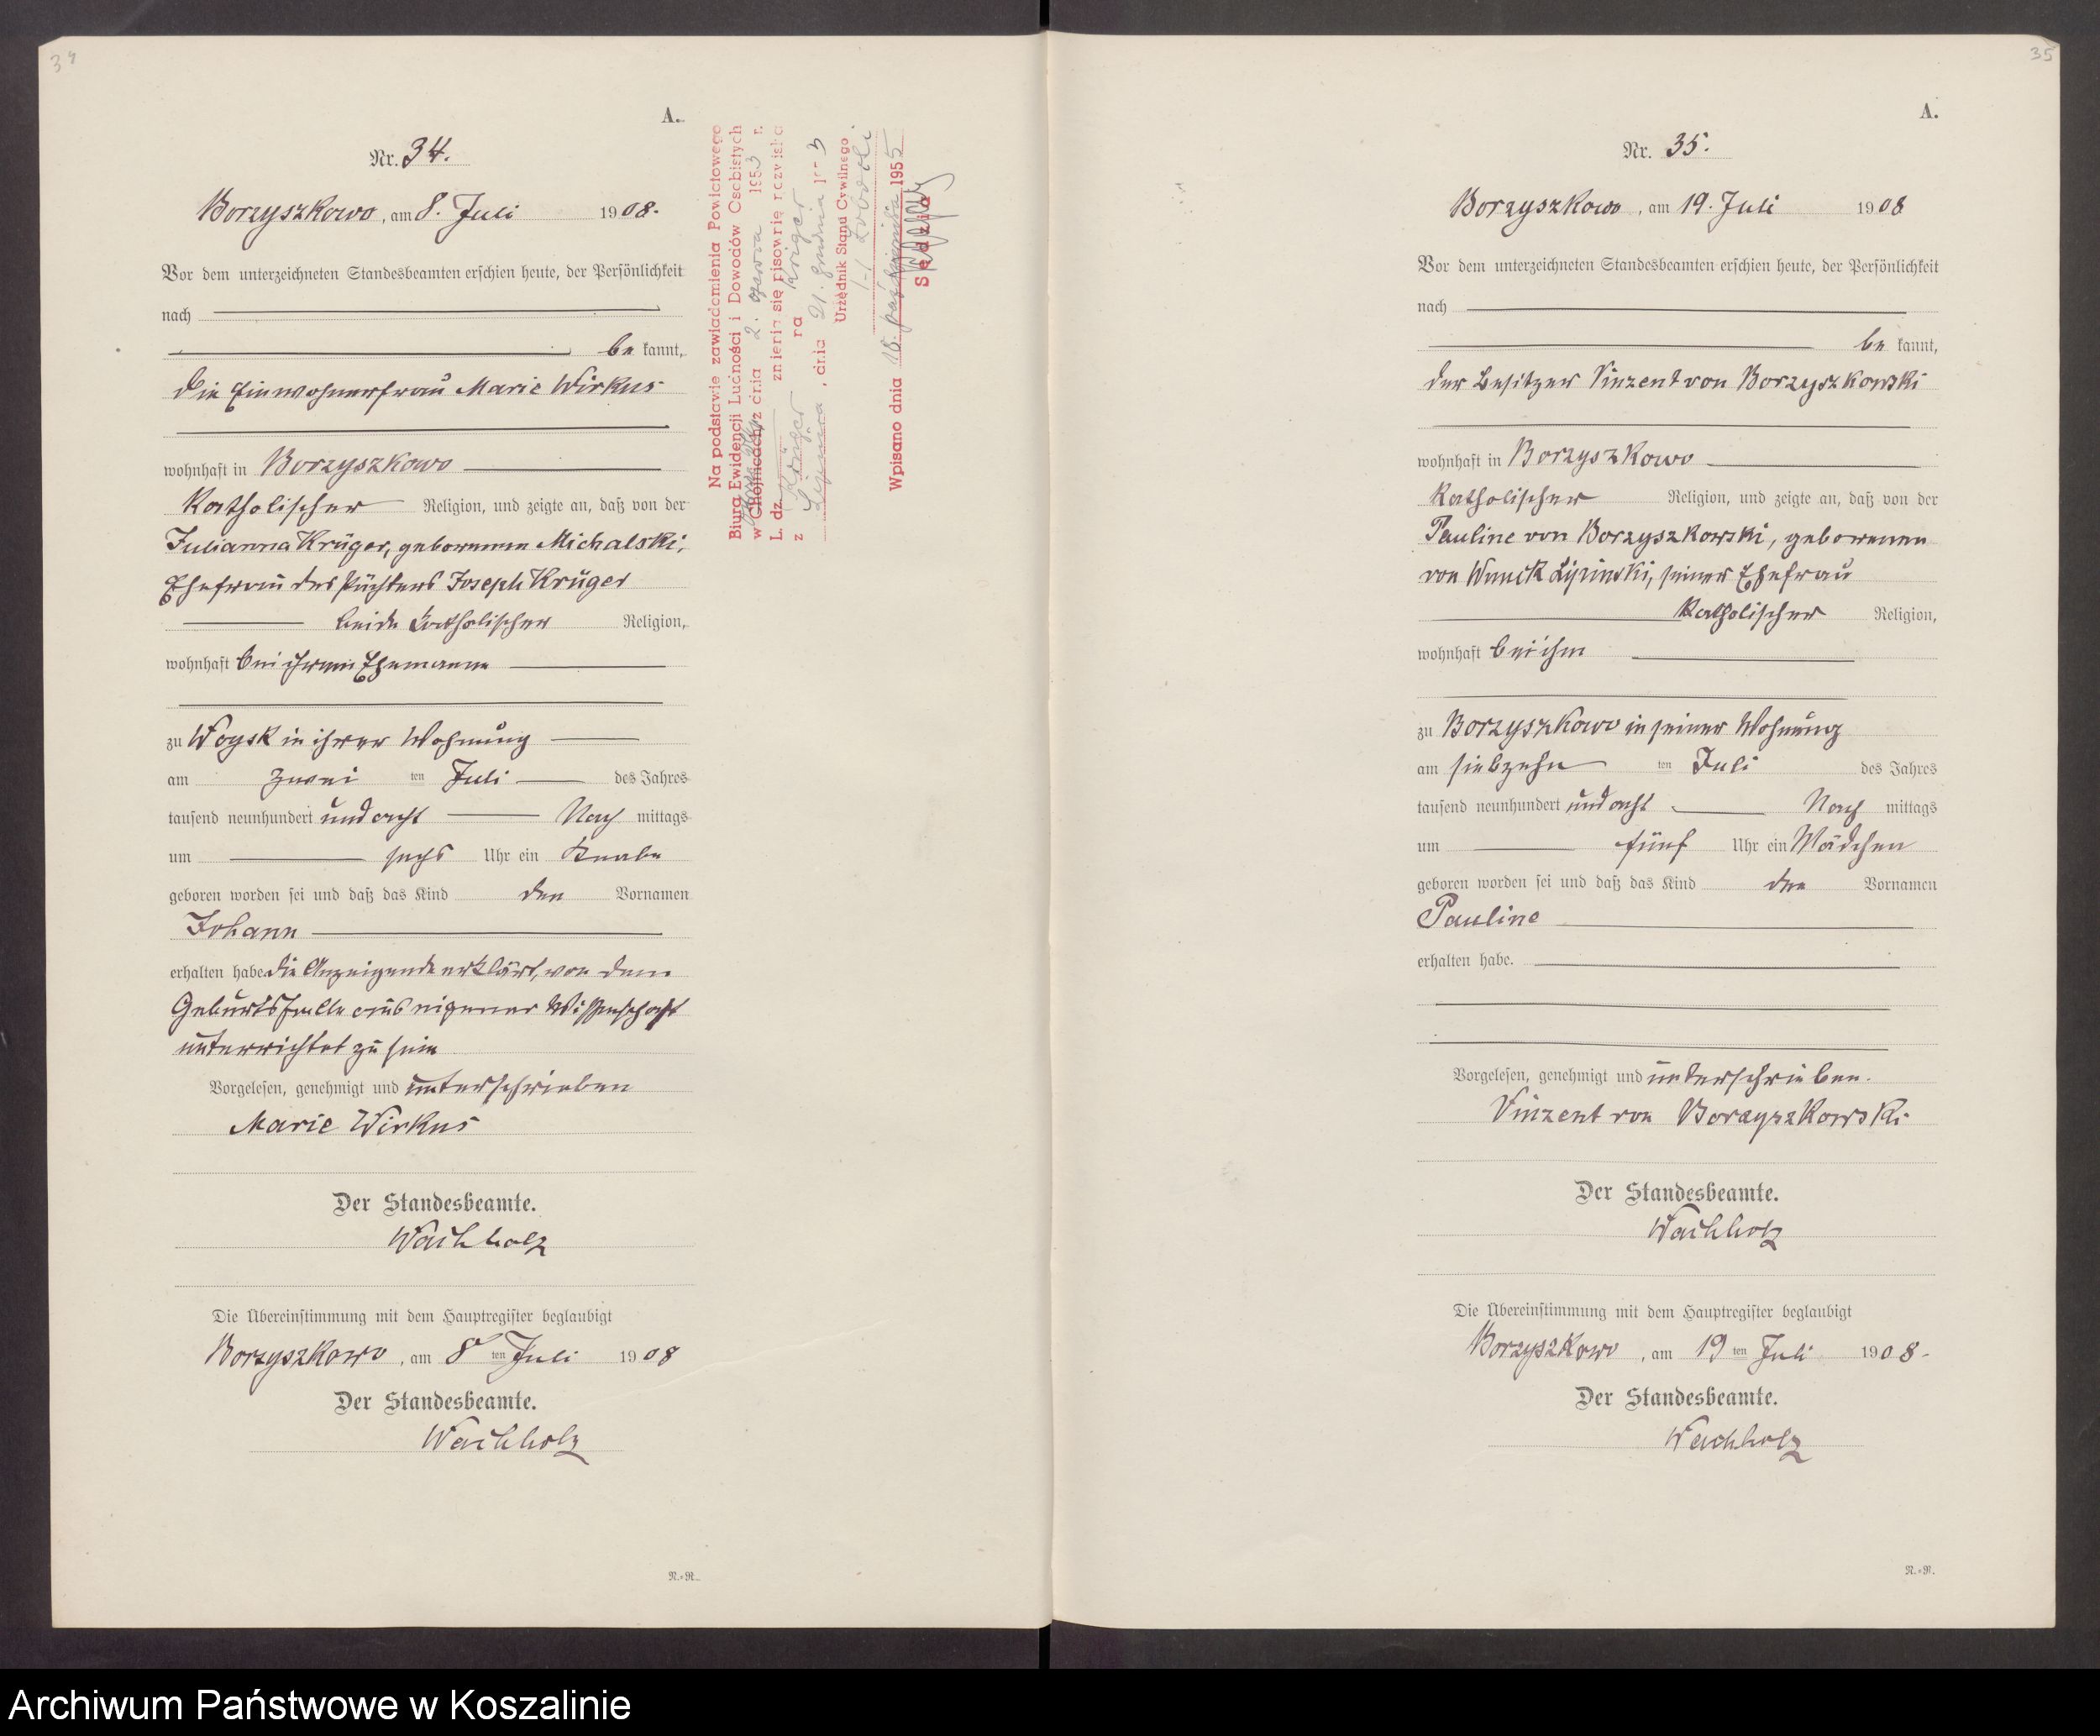 34
A.
Nr. 34.
Borzyszkowo, am 8. Juli 1908.
Vor dem unterzeichneten Standesbeamten erschien heute, der Persönlichkeit
nach
be kannt,
die Einwohnerfrau Marie Wirkus
wohnhaft in Borzyszkowo
katholischer Religion, und zeigte an, daß von der
Julianna Krüger, geborenen Michalski,
Ehefrau des Pächters Joseph Krüger
beide katholischer Religion,
wohnhaft bei ihrem Ehemanne
zu Woysk in ihrer Wohnung
am zwei ten Juli des Jahres
tausend neunhundert und acht Nach mittags
um sechs Uhr ein Knabe
geboren worden sei und daß das Kind den Vornamen
Johann
erhalten habe. Die Anzeigende erklärt, von dem
Geburtsfalle aus eigener Wissenschaft
unterrichtet zu sein
Vorgelesen, genehmigt und unterschrieben
Marie Wirkus
Der Standesbeamte.
Wachholz
Die Übereinstimmung mit dem Hauptregister beglaubigt
Borzyszkowo, am 8 ten Juli 1908
Der Standesbeamte.
Wachholz
N.=N.
Na podstawie zawiadomienia Powiatowego
Biura Ewidencji Ludności i Dowodów Osobistych
w Chojnicach z dnia 2. czerwca 1953 r.
L. dz. zmienia się pisownię nazwiska
z Krüger na Kriger
Lipnica, dnia 21. grudnia
Urzędnik Stanu Cywilnego
Wpisano dnia 18. października 1955
35
A.
Nr. 35.
Borzyszkowo, am 19. Juli 1908
Vor dem unterzeichneten Standesbeamten erschien heute, der Persönlichkeit
nach
be kannt,
der Besitzer Vinzent von Borzyszkowski
wohnhaft in Borzyszkowo
katholischer Religion, und zeigte an, daß von der
Pauline von Borzyszkowski, geborenen
von Wnuck Lipinski, seiner Ehefrau
katholischer Religion,
wohnhaft bei ihm
zu Borzyszkowo in seiner Wohnung
am siebzehn ten Juli des Jahres
tausend neunhundert und acht Nach mittags
um fünf Uhr ein Mädchen
geboren worden sei und daß das Kind den Vornamen
Pauline
erhalten habe.
Vorgelesen, genehmigt und unterschrieben.
Vinzent von Borzyszkowski
Der Standesbeamte.
Wachholz
Die Übereinstimmung mit dem Hauptregister beglaubigt
Borzyszkowo, am 19 ten Juli 1908.
Der Standesbeamte.
Wachholz
N.=N.
Archiwum Państwowe w Koszalinie